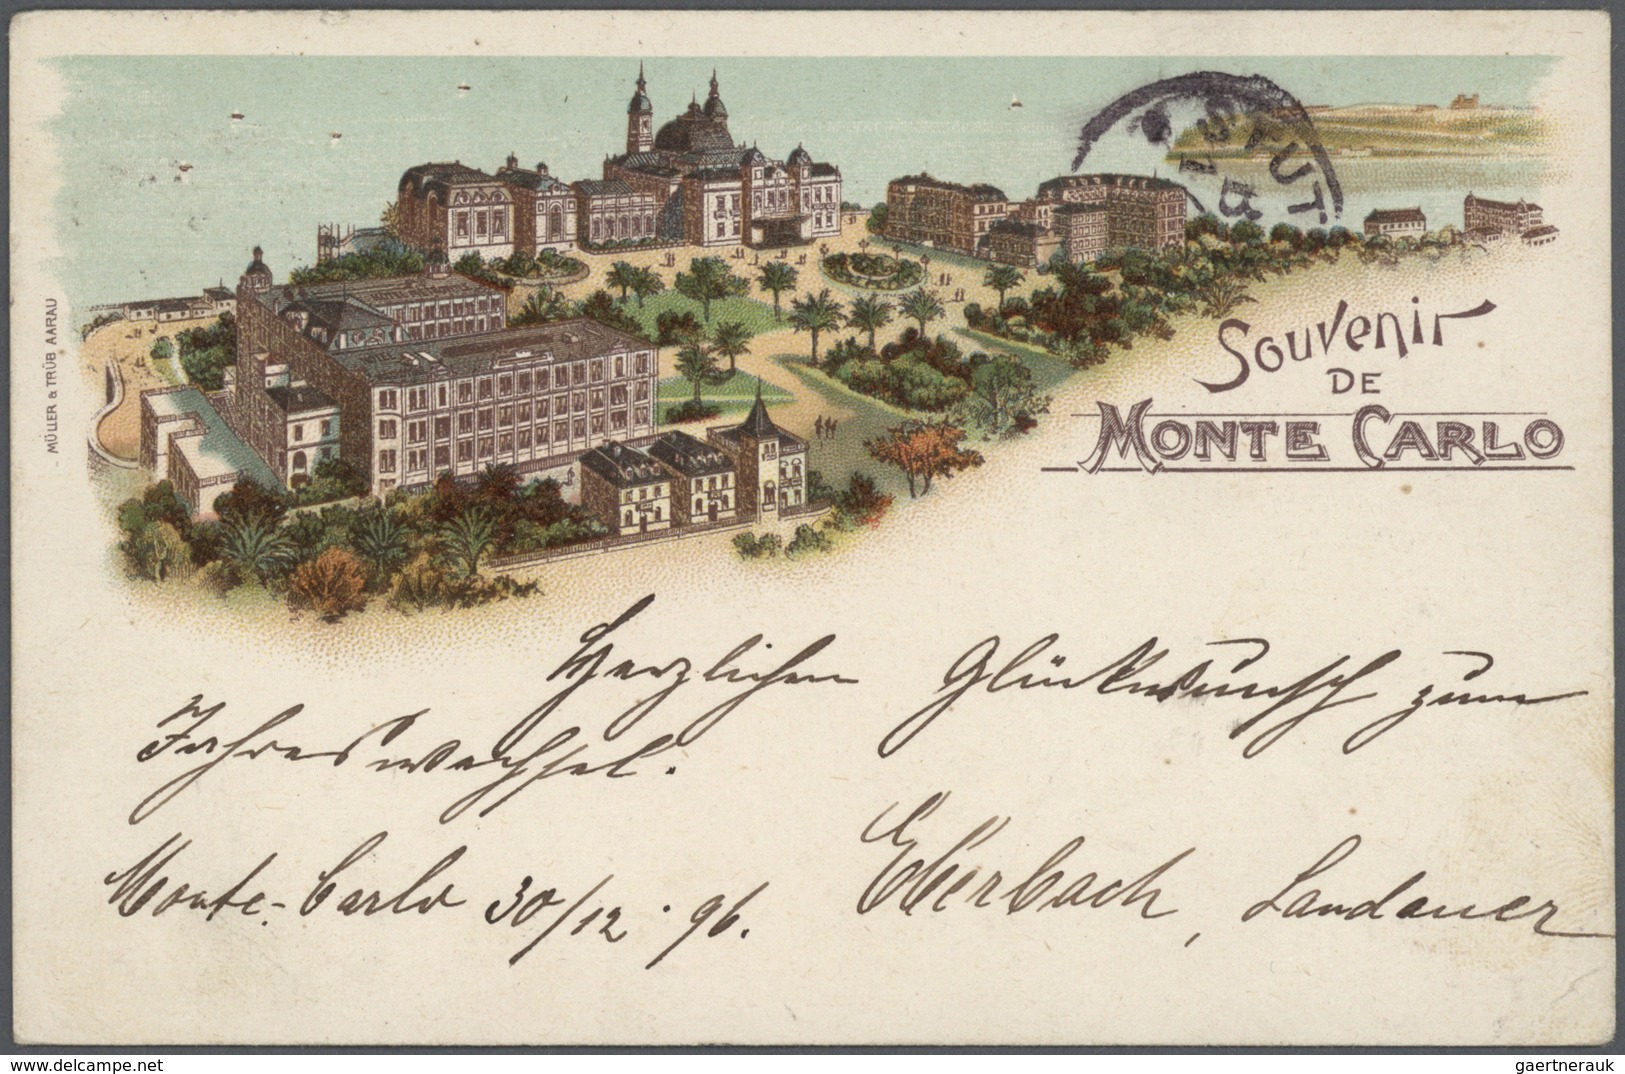 MÜLLER & TRÜB AARAU
STUT
Souvenir
DE
MONTE CARLO
Herzlichen Glückwunsch zum
Jahreswechsel.
Monte-Carlo 30/12.96.
Eberbach, Landauer
www.delcampe.net
gaertnerauk